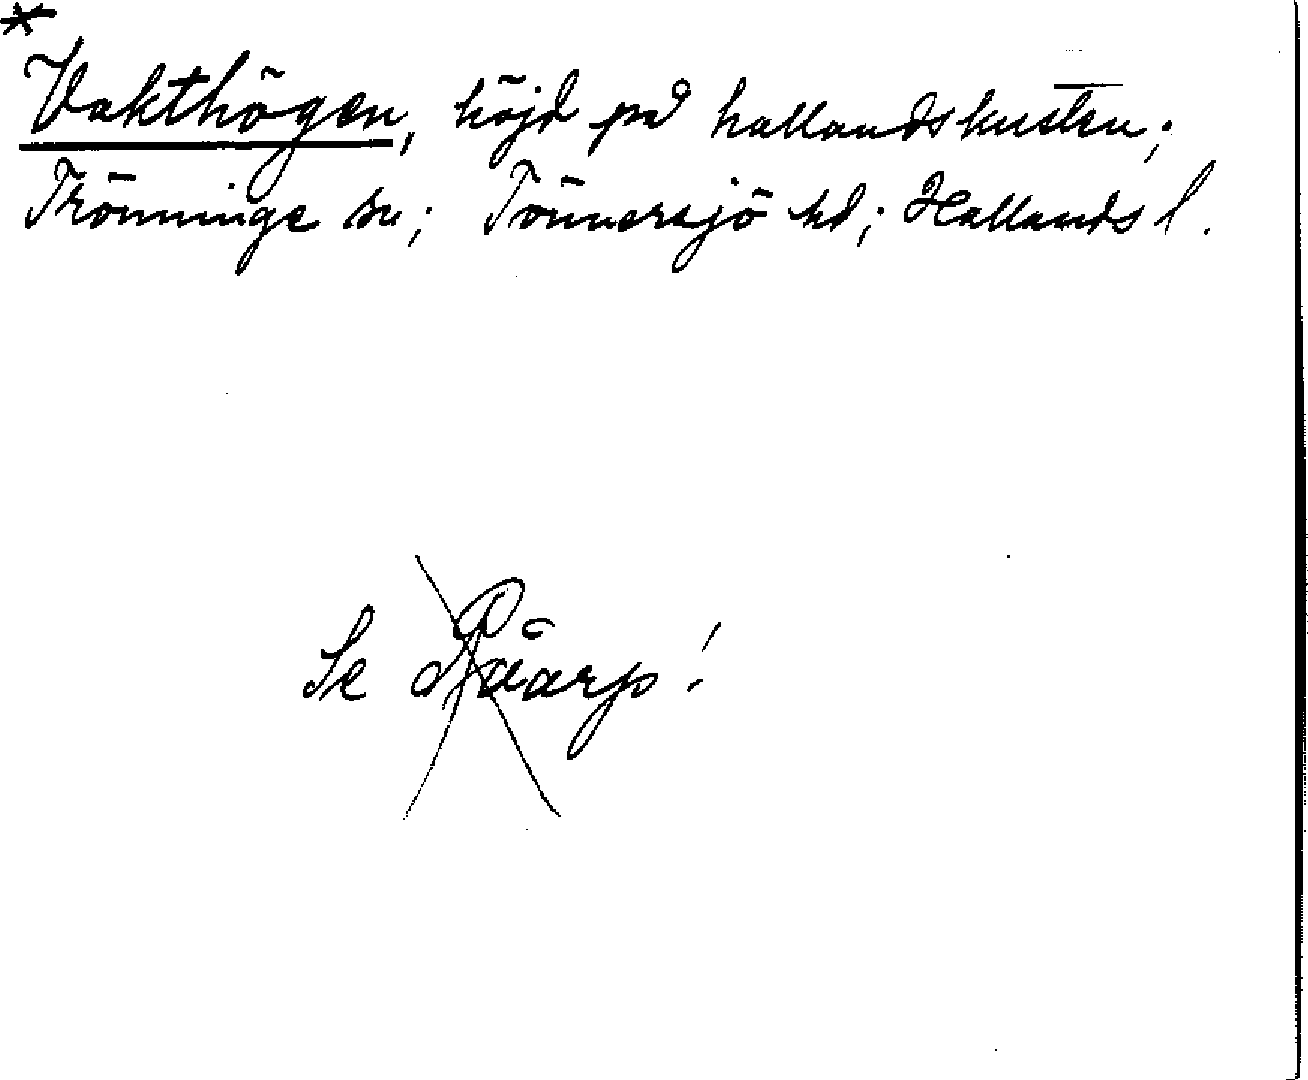 *
Vakthögen, höjd på hallandskusten;
Trönninge sn; Tönnersjö hd; Hallands l.
Se Råarp!